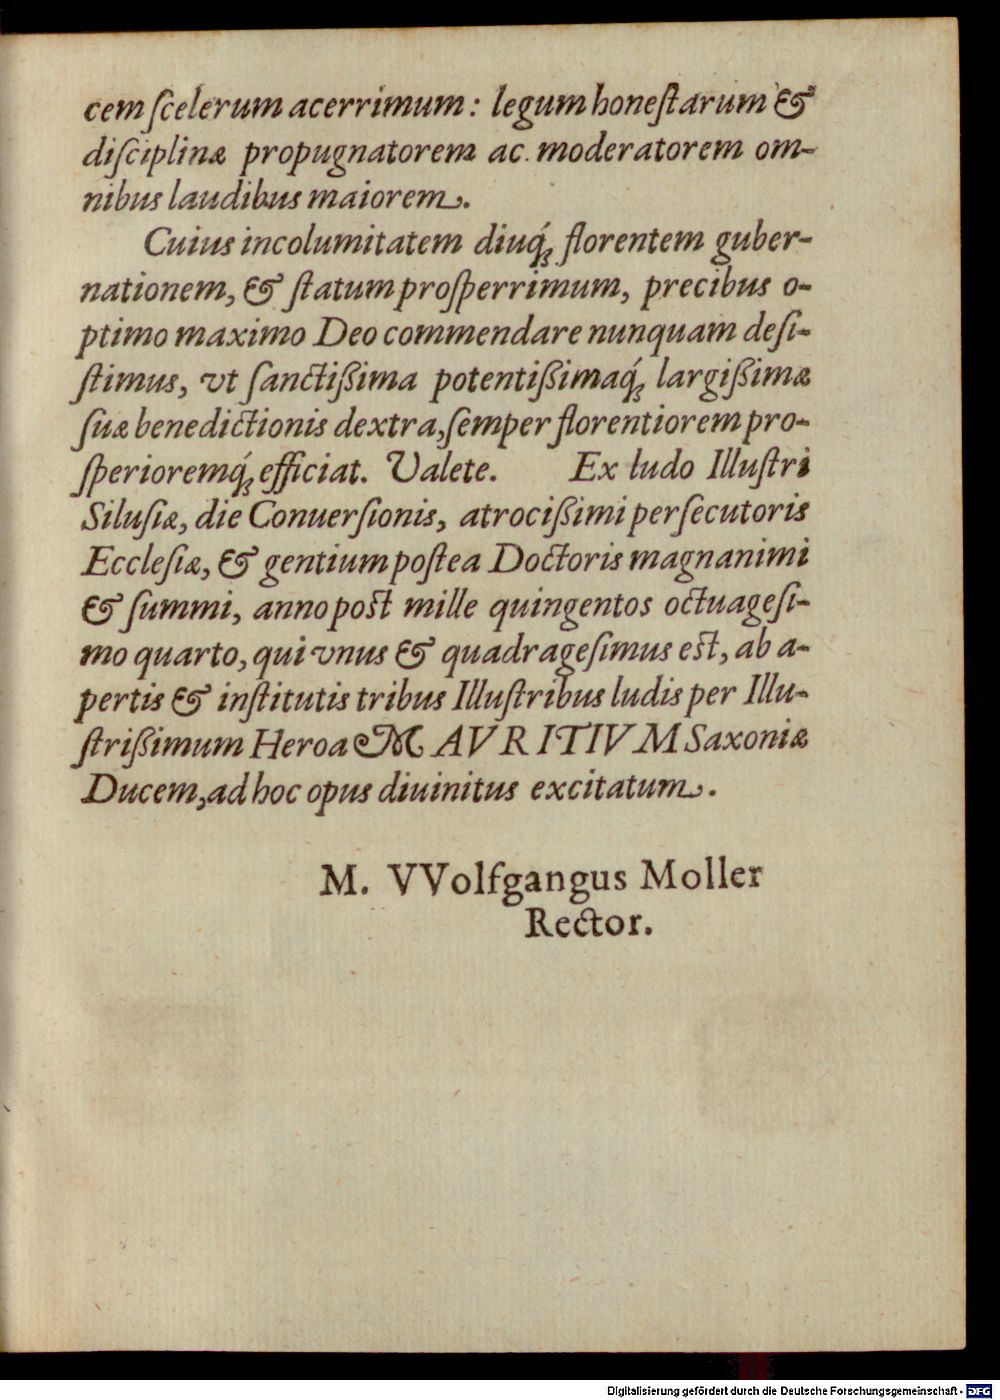 cem ſcelerum acerrimum: legum honeſtarum &
diſciplinæ propugnatorem ac. moderatorem om-
nibus laudibus maiorem.
Cuius incolumitatem diuq́; florentem guber-
nationem, & ſtatum proſperrimum, precibus o-
ptimo maximo Deo commendare nunquam deſi-
ſtimus, vt ſanctißima potentißimaq́; largißimæ
ſuæ benedictionis dextra, ſemper florentiorem pro-
ſperioremq́; efficiat. Valete. Ex ludo Illuſtri
Siluſiæ, die Conuerſionis, atrocißimi perſecutoris
Eccleſiæ, & gentium poſtea Doctoris magnanimi
& ſummi, anno poſt mille quingentos octuageſi-
mo quarto, qui vnus & quadrageſimus eſt, ab a-
pertis & inſtitutis tribus Illuſtribus ludis per Illu-
ſtrißimum Heroa MAVRITIVM Saxoniæ
Ducem, ad hoc opus diuinitus excitatum.
M. VVolfgangus Moller
Rector.
Digitalisierung gefördert durch die Deutsche Forschungsgemeinschaft - DFG